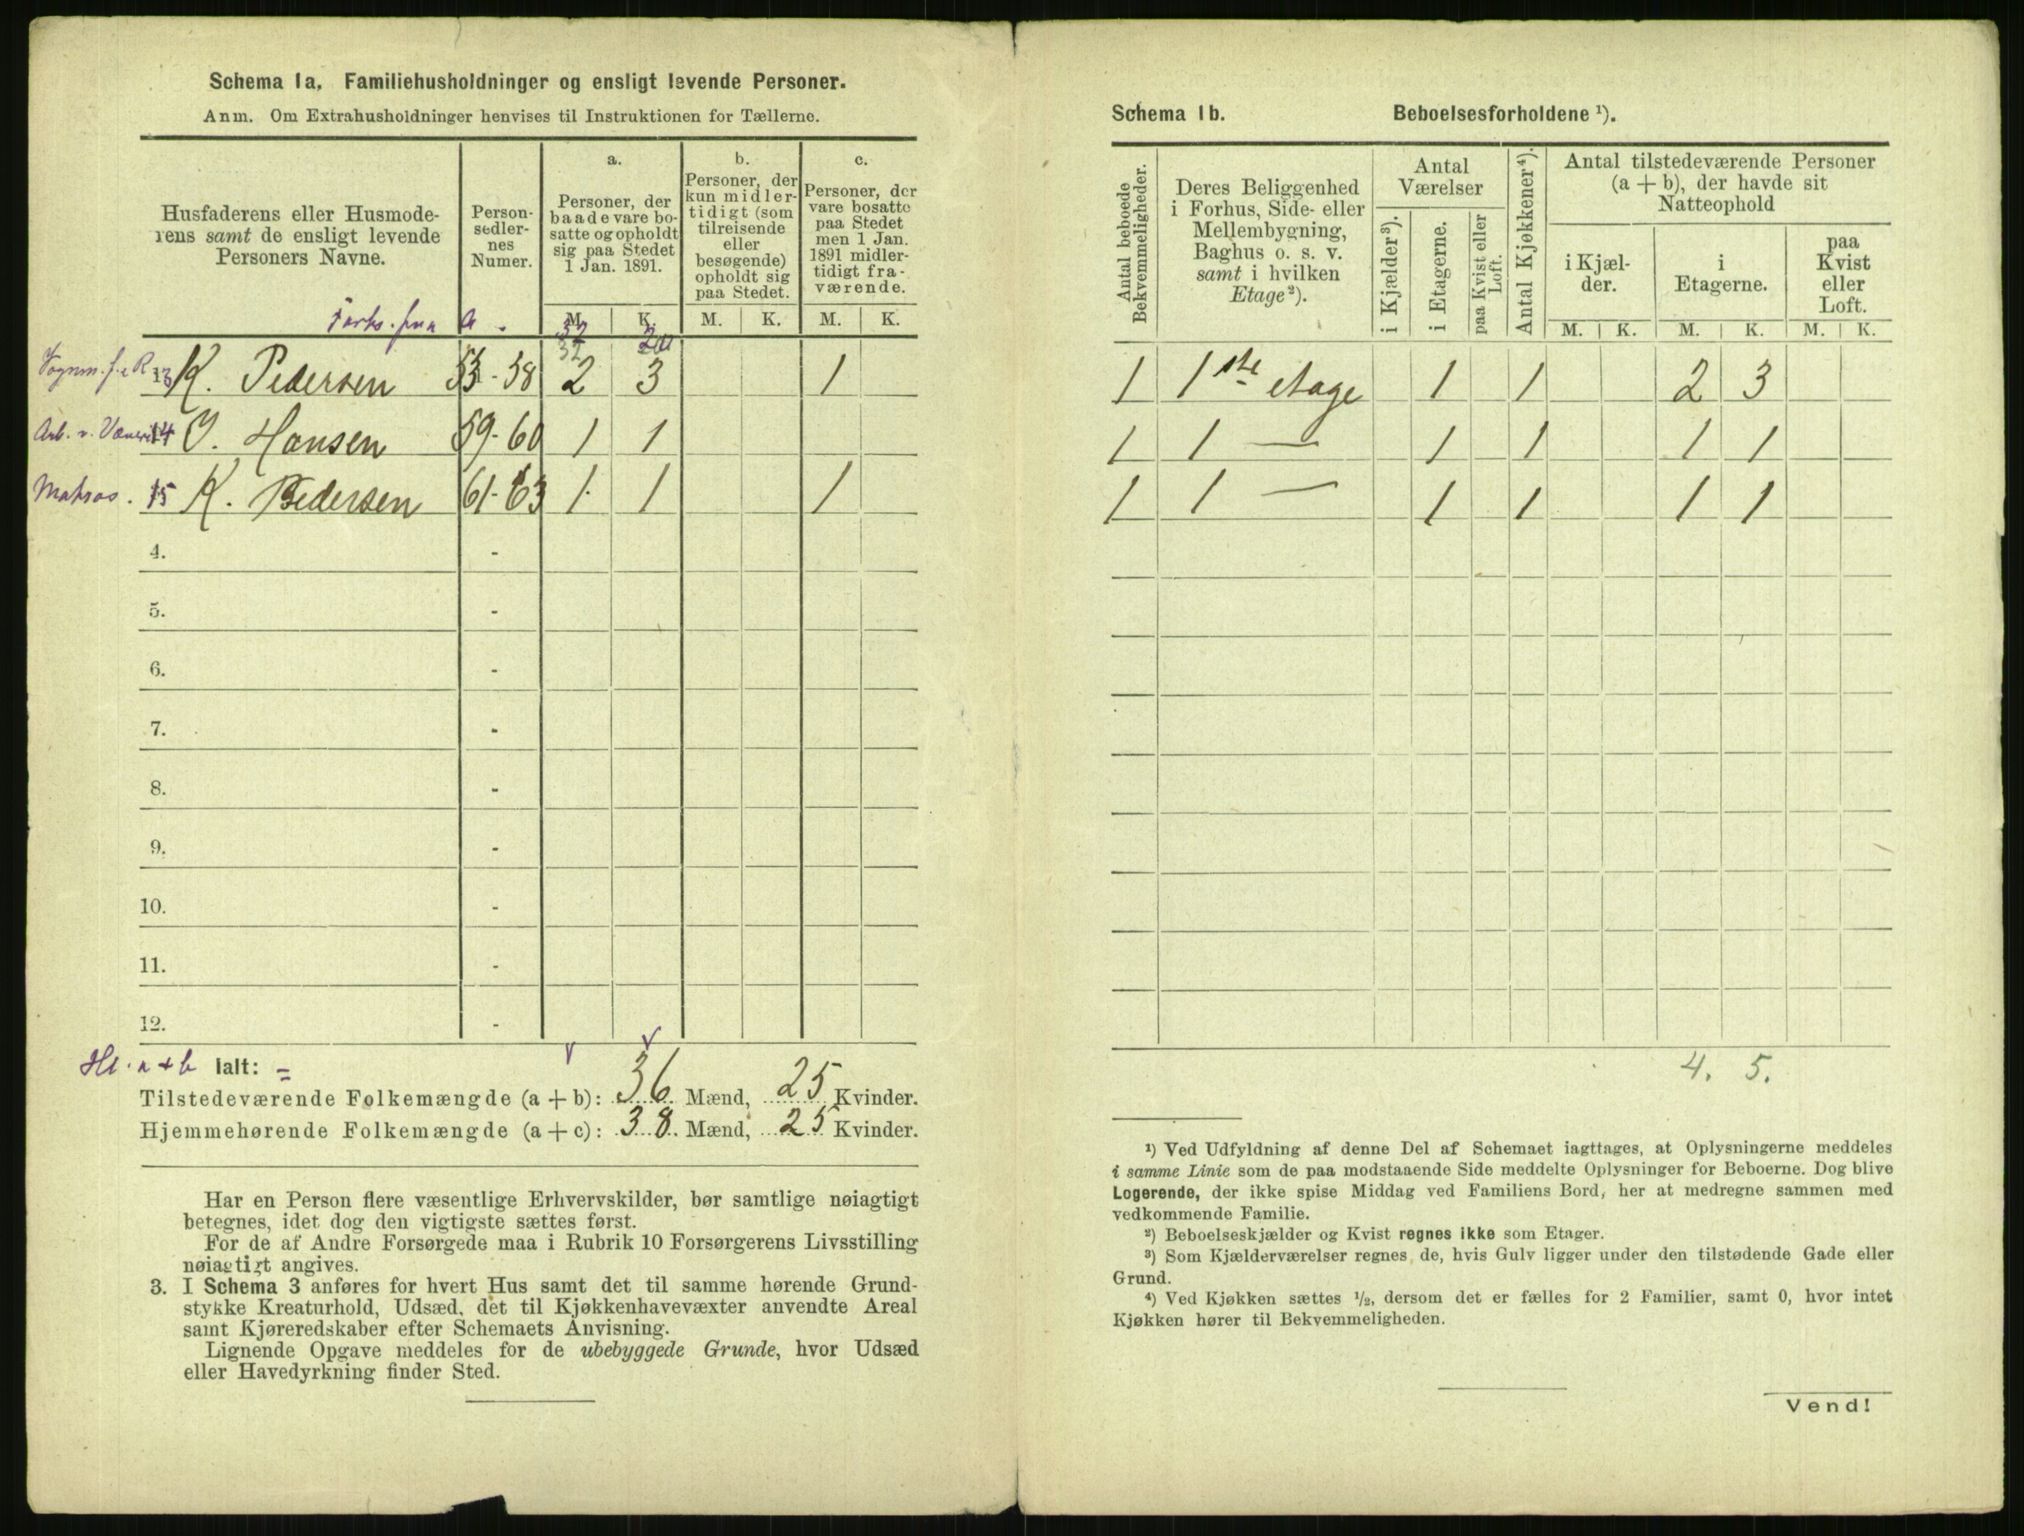 Schema 1a. Familiehusholdninger og ensligt levende Personer.
Anm. Om Extrahusholdninger henvises til Instruktionen for Tællerne.
Husfaderens eller Husmoderens samt de ensligt levende Personers Navne.
Personsedlernes Numer.
a. Personer, der baade vare bosatte og opholdt sig paa Stedet 1 Jan. 1891.
b. Personer, der kun midlertidigt (som tilreisende eller besøgende) opholdt sig paa Stedet.
c. Personer, der vare bosatte paa Stedet men 1 Jan. 1891 midlertidigt fraværende.
M. K. M. K. M. K.
32 24
13 K. Pedersen 53 - 58 2 3 1
14 J. Hansen 59 - 60 1 1
Matros. 15 K. Pedersen 61 - 63 1 1 1
4. -
5. -
6. -
7. -
8. -
9. -
10. -
11. -
12. -
a + b Ialt: =
Tilstedeværende Folkemængde (a + b): 36 Mænd, 25 Kvinder.
Hjemmehørende Folkemængde (a + c): 38 Mænd, 25 Kvinder.
Har en Person flere væsentlige Erhvervskilder, bør samtlige nøiagtigt
betegnes, idet dog den vigtigste sættes først.
For de af Andre Forsørgede maa i Rubrik 10 Forsørgerens Livsstilling
nøiagtigt angives.
3. I Schema 3 anføres for hvert Hus samt det til samme hørende Grund-
stykke Kreaturhold, Udsæd, det til Kjøkkenhavevæxter anvendte Areal
samt Kjøreredskaber efter Schemaets Anvisning.
Lignende Opgave meddeles for de ubebyggede Grunde, hvor Udsæd
eller Havedyrkning finder Sted.
Schema 1b. Beboelsesforholdene ¹).
Antal beboede Bekvemmeligheder.
Deres Beliggenhed i Forhus, Side- eller Mellembygning, Baghus o. s. v. samt i hvilken Etage²).
Antal Værelser
i Kjælder³).
i Etagerne.
paa Kvist eller Loft.
Antal Kjøkkener⁴).
Antal tilstedeværende Personer (a + b), der havde sit Natteophold
i Kjælder.
i Etagerne.
paa Kvist eller Loft.
M. K. M. K. M. K.
1 1ste etage 1 1 2 3
1 1 — 1 1 1 1
1 1 — 1 1 1 1
4. 5.
¹) Ved Udfyldning af denne Del af Schemaet iagttages, at Oplysningerne meddeles
i samme Linie som de paa modstaaende Side meddelte Oplysninger for Beboerne. Dog blive
Logerende, der ikke spise Middag ved Familiens Bord, her at medregne sammen med
vedkommende Familie.
²) Beboelseskjælder og Kvist regnes ikke som Etager.
³) Som Kjælderværelser regnes de, hvis Gulv ligger under den tilstødende Gade eller
Grund.
⁴) Ved Kjøkken sættes ½, dersom det er fælles for 2 Familier, samt 0, hvor intet
Kjøkken hører til Bekvemmeligheden.
Vend!